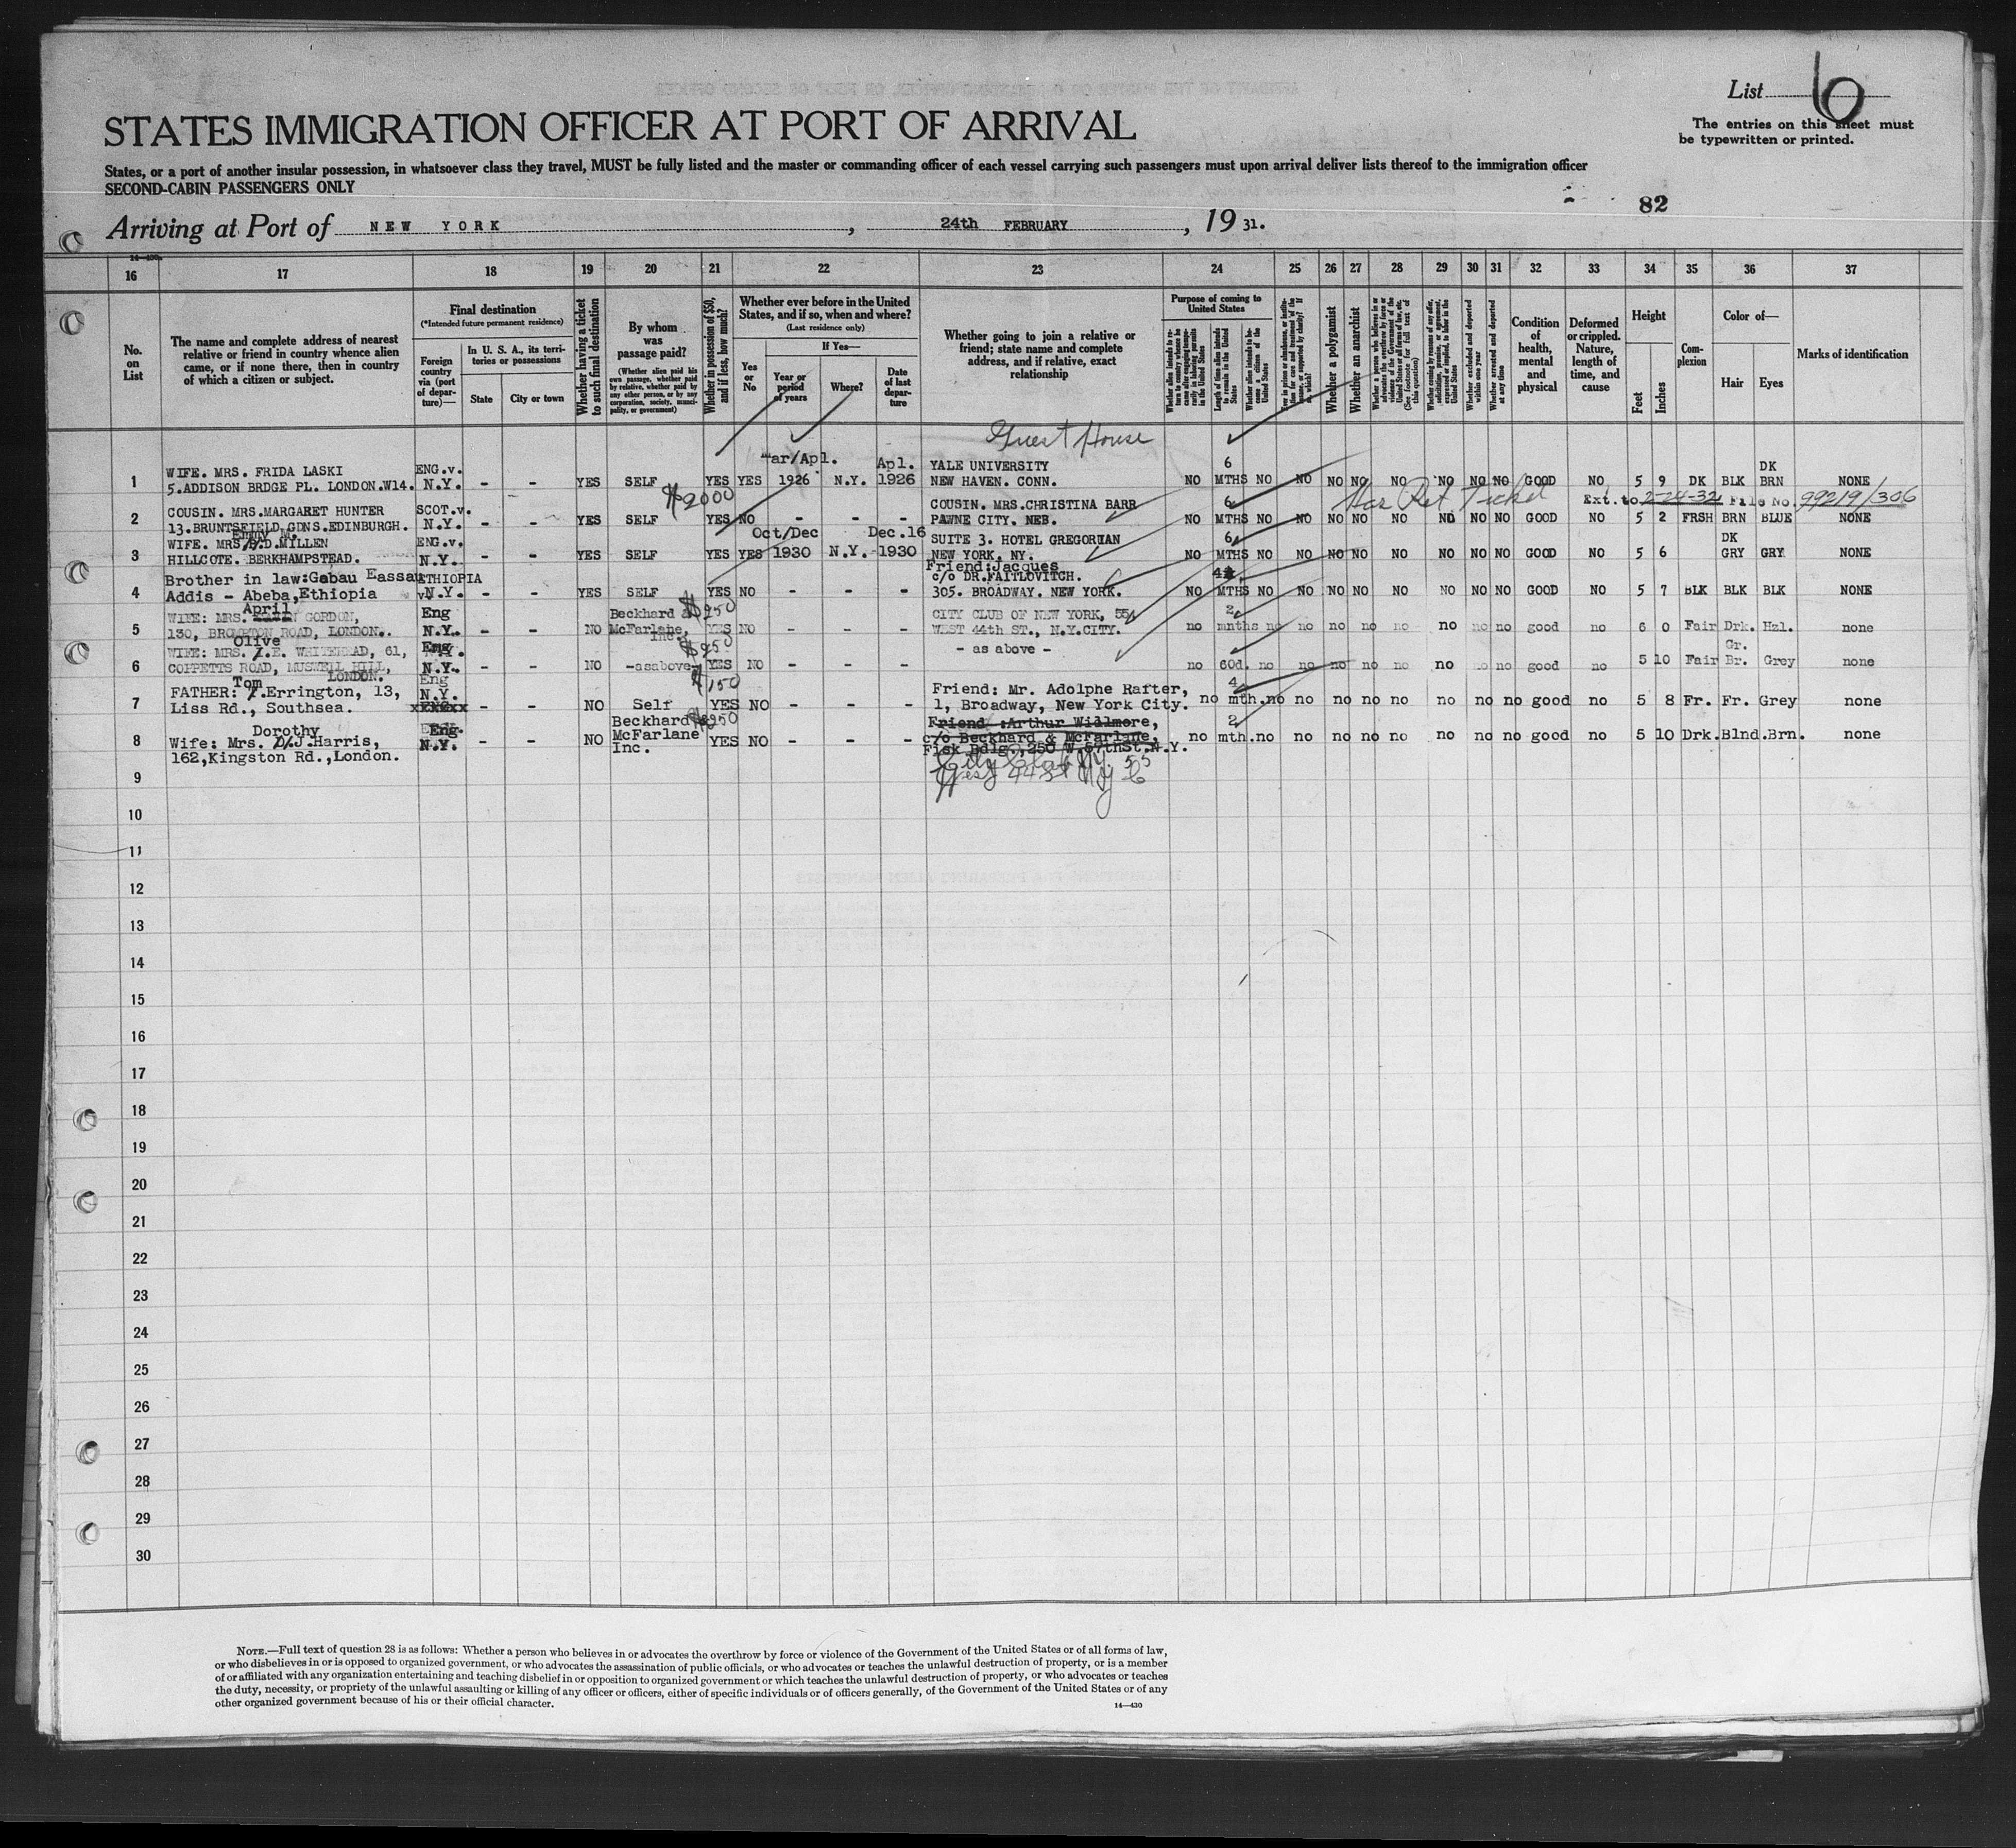 List 6
The entries on this sheet must
be typewritten or printed.
STATES IMMIGRATION OFFICER AT PORT OF ARRIVAL
States, or a port of another insular possession, in whatsoever class they travel, MUST be fully listed and the master or commanding officer of each vessel carrying such passengers must upon arrival deliver lists thereof to the immigration officer
SECOND-CABIN PASSENGERS ONLY
82
Arriving at Port of NEW YORK, 24th FEBRUARY, 19 31.
14—430
16 17 18 19 20 21 22 23 24 25 26 27 28 29 30 31 32 33 34 35 36 37
No. on List
The name and complete address of nearest relative or friend in country whence alien came, or if none there, then in country of which a citizen or subject.
Final destination
(*Intended future permanent residence)
Foreign country via (port of departure)—
In U. S. A., its territories or possessions
State
City or town
Whether having a ticket to such final destination
By whom was passage paid?
(Whether alien paid his own passage, whether paid by relative, whether paid by any other person, or by any corporation, society, municipality, or government)
Whether in possession of $50, and if less, how much?
Whether ever before in the United States, and if so, when and where?
(Last residence only)
Yes or No
If Yes—
Year or period of years
Where?
Date of last departure
Whether going to join a relative or friend; state name and complete address, and if relative, exact relationship
Purpose of coming to United States
Length of time alien intends to remain in the United States
Whether alien intends to become a citizen of the United States
Whether a polygamist
Whether an anarchist
(See footnote for full text of this question)
Whether excluded and deported within one year
Whether arrested and deported at any time
Condition of health, mental and physical
Deformed or crippled. Nature, length of time, and cause
Height
Feet
Inches
Complexion
Color of—
Hair
Eyes
Marks of identification
Guest House
WIFE. MRS. FRIDA LASKI ENG.v. Mar/Apl. Apl. YALE UNIVERSITY 6 DK
1 5.ADDISON BRDGE PL. LONDON.W14. N.Y. - - YES SELF YES YES 1926 N.Y. 1926 NEW HAVEN. CONN. NO MTHS NO NO NO NO NO NO NO NO GOOD NO 5 9 DK BLK BRN NONE
$2000 Has Ret Ticket Ext. to 2-24-32 File No. 99219/306
COUSIN. MRS.MARGARET HUNTER SCOT.v. COUSIN. MRS.CHRISTINA BARR 6
2 13.BRUNTSFIELD GDNS.EDINBURGH. N.Y. - - YES SELF YES NO - - - PAWNE CITY. NEB. NO MTHS NO NO NO NO NO NO NO NO GOOD NO 5 2 FRSH BRN BLUE NONE
WIFE. MRS. D.MILLEN ENG.v. Oct/Dec Dec.16 SUITE 3. HOTEL GREGORIAN 6 DK
3 HILLCOTE. BERKHAMPSTEAD. N.Y. - - YES SELF YES YES 1930 N.Y. 1930 NEW YORK, NY. NO MTHS NO NO NO NO NO NO NO NO GOOD NO 5 6 GRY GRY NONE
Friend:Jacques
Brother in law:Gabau Eassau ETHIOPIA c/o DR.FAITLOVITCH. 4
4 Addis - Abeba,Ethiopia v.N.Y. - - YES SELF YES NO - - - 305. BROADWAY. NEW YORK. NO MTHS NO NO NO NO NO NO NO NO GOOD NO 5 7 BLK BLK BLK NONE
April
WIFE: MRS. GORDON, Eng Beckhard & $250 CITY CLUB OF NEW YORK, 55 2
5 130, BROMPTON ROAD, LONDON. N.Y. - - NO McFarlane, Inc. YES NO - - - WEST 44th ST., N.Y.CITY. no mnths no no no no no no no no good no 6 0 Fair Drk. Hzl. none
Olive
WIFE: MRS. E. WHITEHEAD, 61, Eng $250 - as above - Gr.
6 COPPETTS ROAD, MUSWELL HILL, LONDON. N.Y. - - NO -asabove- YES NO - - - no 60d. no no no no no no no no good no 5 10 Fair Br. Grey none
Tom
FATHER: Errington, 13, Eng N.Y. $150 Friend: Mr. Adolphe Rafter, 4
7 Liss Rd., Southsea. - - NO Self YES NO - - - 1, Broadway, New York City. no mth. no no no no no no no no good no 5 8 Fr. Fr. Grey none
Dorothy
Beckhard & $250 Friend :Arthur Willmore, 2
8 Wife: Mrs. J.Harris, Eng. N.Y. - - NO McFarlane Inc. YES NO - - - c/o Beckhard & McFarlane, no mth. no no no no no no no no good no 5 10 Drk. Blnd. Brn. none
162,Kingston Rd.,London. Fisk Bdlg.,250 W.57thSt.N.Y.
City Club NY. 55
West 44 St NYC
9
10
11
12
13
14
15
16
17
18
19
20
21
22
23
24
25
26
27
28
29
30
NOTE.—Full text of question 28 is as follows: Whether a person who believes in or advocates the overthrow by force or violence of the Government of the United States or of all forms of law,
or who disbelieves in or is opposed to organized government, or who advocates the assassination of public officials, or who advocates or teaches the unlawful destruction of property, or is a member
of or affiliated with any organization entertaining and teaching disbelief in or opposition to organized government or which teaches the unlawful destruction of property, or who advocates or teaches
the duty, necessity, or propriety of the unlawful assaulting or killing of any officer or officers, either of specific individuals or of officers generally, of the Government of the United States or of any
other organized government because of his or their official character.
14—430